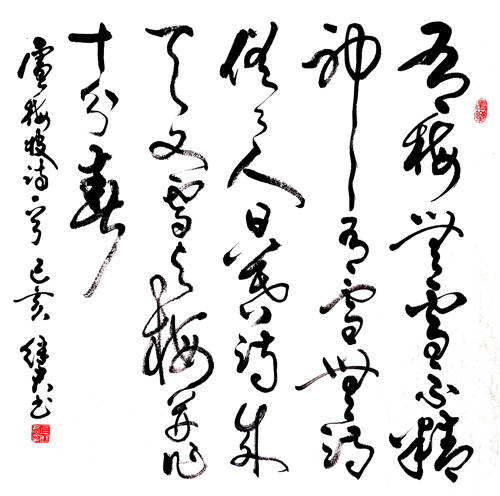 有梅無雪不精
神有雪無诗
俗了人日暮诗成
天又雪与梅並作
十分春
盧梅坡诗一首 己亥 书